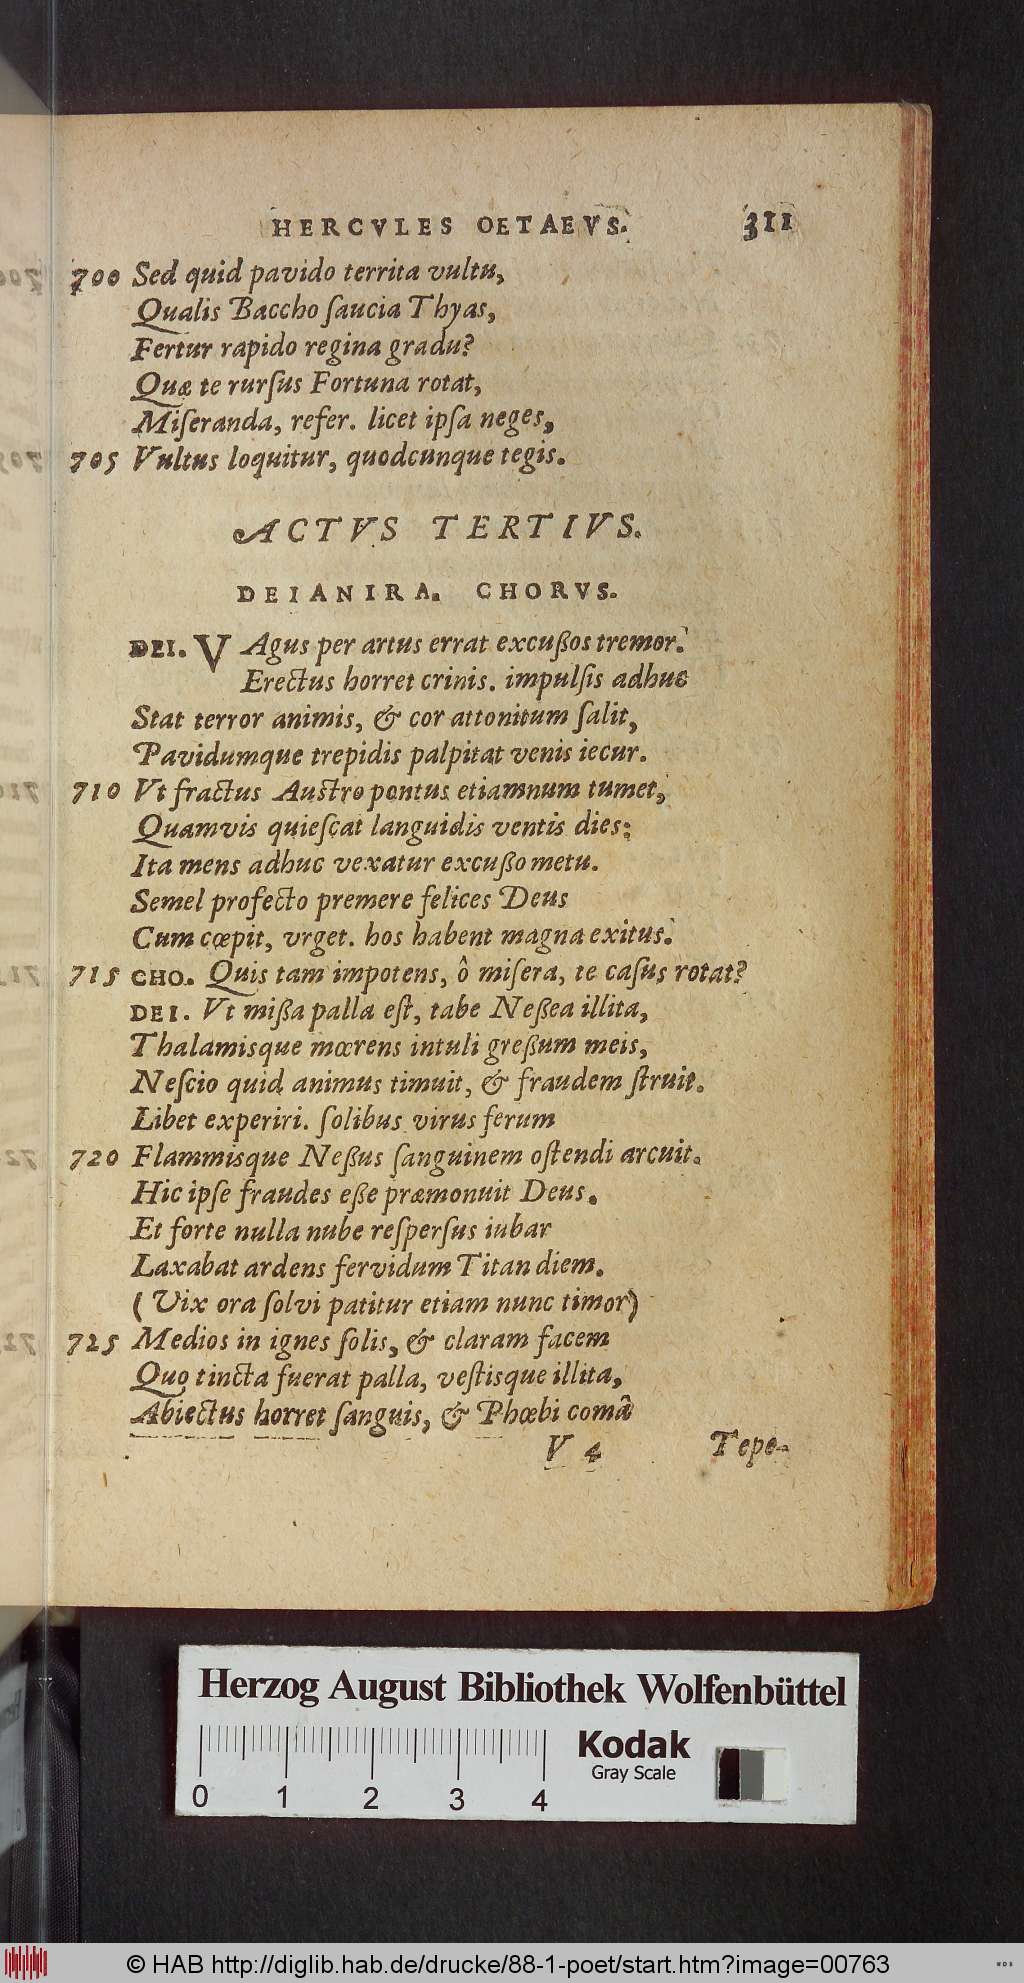 HERCVLES OETAEVS. 311
700 Sed quid pavido territa vultu,
Qualis Baccho ſaucia Thyas,
Fertur rapido regina gradu?
Quæ te rurſus Fortuna rotat,
Miſeranda, refer. licet ipſa neges,
705 Vultus loquitur, quodcunque tegis.
ACTVS TERTIVS.
DEIANIRA. CHORVS.
DEI. VAgus per artus errat excuſſos tremor.
Erectus horret crinis. impulſis adhuc
Stat terror animis, & cor attonitum ſalit,
Pavidumque trepidis palpitat venis iecur.
710 Vt fractus Auſtro pontus etiamnum tumet,
Quamvis quieſcat languidis ventis dies:
Ita mens adhuc vexatur excuſſo metu.
Semel profecto premere felices Deus
Cum cœpit, vrget. hos habent magna exitus.
715 CHO. Quis tam impotens, ô miſera, te caſus rotat?
DEI. Vt miſſa palla eſt, tabe Neſſea illita,
Thalamisque mœrens intuli greſſum meis,
Neſcio quid animus timuit, & fraudem ſtruit.
Libet experiri. ſolibus virus ferum
720 Flammisque Neſſus ſanguinem oſtendi arcuit.
Hic ipſe fraudes eſſe præmonuit Deus.
Et forte nulla nube reſperſus iubar
Laxabat ardens fervidum Titan diem.
(Vix ora ſolvi patitur etiam nunc timor)
725 Medios in ignes ſolis, & claram facem
Quo tincta fuerat palla, veſtisque illita,
Abiectus horret ſanguis, & Phœbi comâ
V 4 Tepe-
Herzog August Bibliothek Wolfenbüttel
Kodak
Gray Scale
0 1 2 3 4
© HAB http://diglib.hab.de/drucke/88-1-poet/start.htm?image=00763